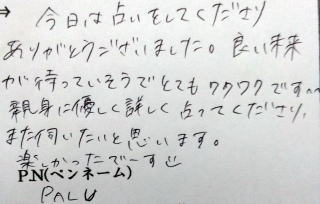 → 今日は占いをしてくださり
ありがとうございました。良い未来
が待っていそうでとてもワクワクです^^
親身に優しく詳しく占ってくださり、
また伺いたいと思います。
楽しかったでーす☺
P.N(ペンネーム)
PALU